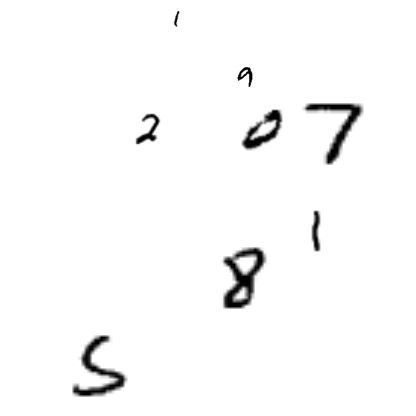 1
9
2 0 7
1
8
5